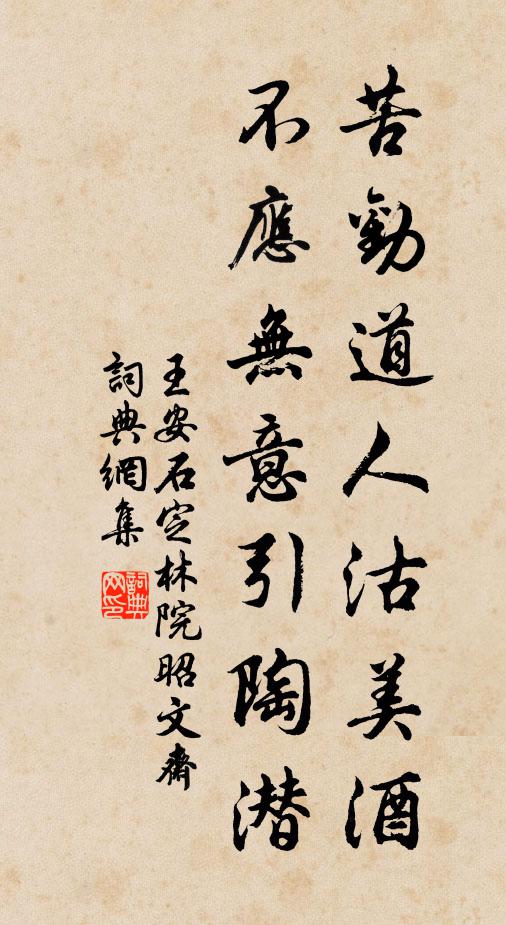 苦勸道人沽美酒
不應無意引陶潜
王安石定林院昭文齋
詞典網集
詞典网印